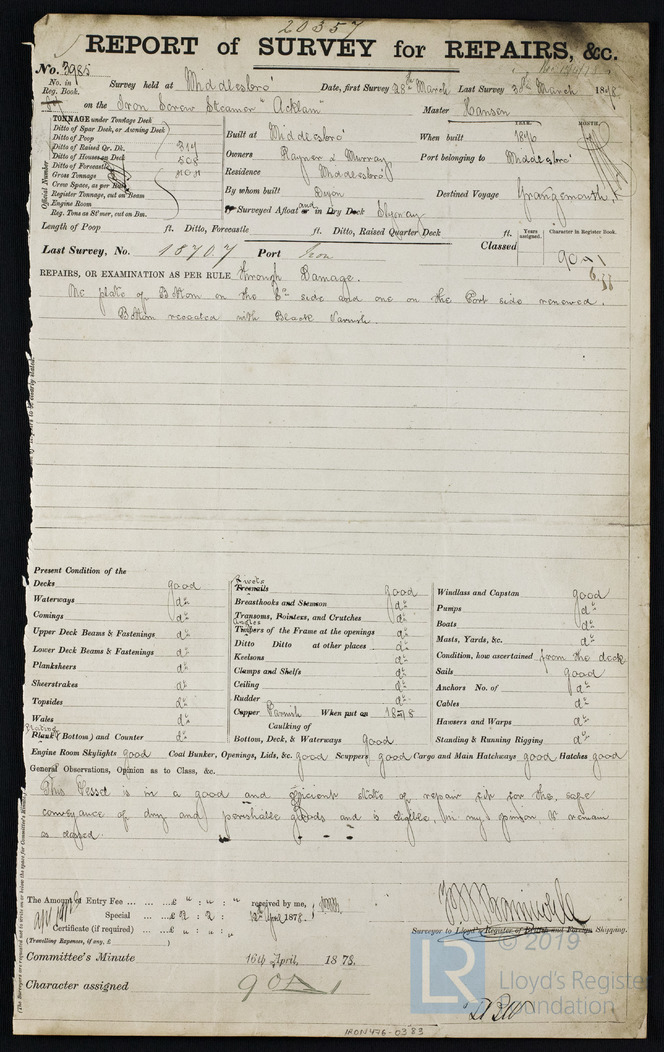 20357
REPORT of SURVEY for REPAIRS, &c.
No. 3985
No. in Reg. Book.
Survey held at Middlesbro' Date, first Survey 28th March Last Survey 30th March 1878
on the Iron Screw Steamer "Acklam" Master Hansen
TONNAGE under Tonnage Deck
Ditto of Spar Deck, or Awning Deck
Ditto of Poop
Ditto of Raised Qr. Dk.
Ditto of Houses on Deck
Ditto of Forecastle
Gross Tonnage
Crew Space, as per
Register Tonnage, cut on Beam
Engine Room
Reg. Tons as St'mer, cut on Bm.
Official Number
Built at Middlesbro' When built 1876
YEAR. MONTH.
Owners Rayner & Murray Port belonging to Middlesbro'
Residence Middlesbro'
By whom built Dixon Destined Voyage Grangemouth
If Surveyed Afloat and or in Dry Dock Slipway
Length of Poop ft. Ditto, Forecastle ft. Ditto, Raised Quarter Deck ft.
Years assigned. Character in Register Book.
Last Survey, No. 18707 Port Iron Classed 90A1
6.77
REPAIRS, OR EXAMINATION AS PER RULE through Damage.
One plate of Bottom on the Sd side and one on the Port side renewed.
Bottom recoated with Black Varnish.
Present Condition of the
Decks good
Waterways do
Comings do
Upper Deck Beams & Fastenings do
Lower Deck Beams & Fastenings do
Planksheers do
Sheerstrakes do
Topsides do
Wales do
Plating
Plank (Bottom) and Counter do
Rivets
Treenails good
Breasthooks and Stemson do
Transoms, Pointers, and Crutches do
Angles
Timbers of the Frame at the openings do
Ditto Ditto at other places do
Keelsons do
Clamps and Shelfs do
Ceiling do
Rudder do
Copper Varnish When put on 1878
Caulking of
Bottom, Deck, & Waterways good
Windlass and Capstan good
Pumps do
Boats do
Masts, Yards, &c. do
Condition, how ascertained from the deck
Sails good
Anchors No. of do
Cables do
Hawsers and Warps do
Standing & Running Rigging do
Engine Room Skylights good Coal Bunker, Openings, Lids, &c. good Scuppers good Cargo and Main Hatchways good Hatches good
General Observations, Opinion as to Class, &c.
This Vessel is in a good and efficient state of repair fit for the safe
conveyance of dry and perishable goods and is eligible, in my opinion, to remain
as classed.
The Amount of Entry Fee £ " : " : " received by me,
Special £ 2 : 2 : 12th April 1878.
Certificate (if required) £ " : " : "
(Travelling Expenses, if any, £ )
Surveyor to Lloyd's Register of British and Foreign Shipping.
Committee's Minute 16th April, 1878.
Character assigned 90A1
IRON476-0383
LR
© 2019
Lloyd's Register
Foundation